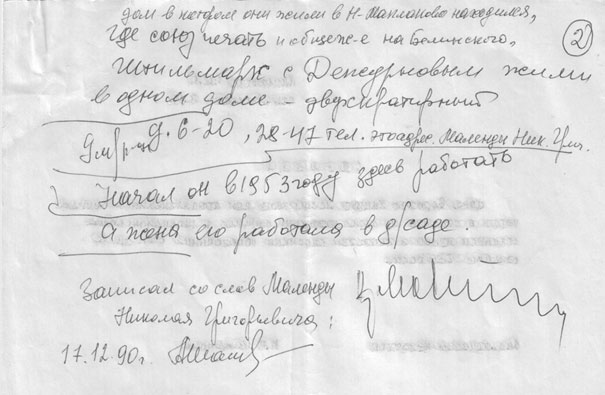 дом в котором они жили в Н-Маклаково находился,
где союзпечать и общеж-е на Белинского,
②
Штильмарк с Дежкровым жили
в одном доме – двухквартирный
9 м/р-н д. 6-20, 28-47 тел. это адрес. Маленды Ник. Григ.
Начал он в 1953 году здесь работать
а жена его работала в д/саде.
Записал со слов Маленды
Николая Григорьевича;
17.12.90г.